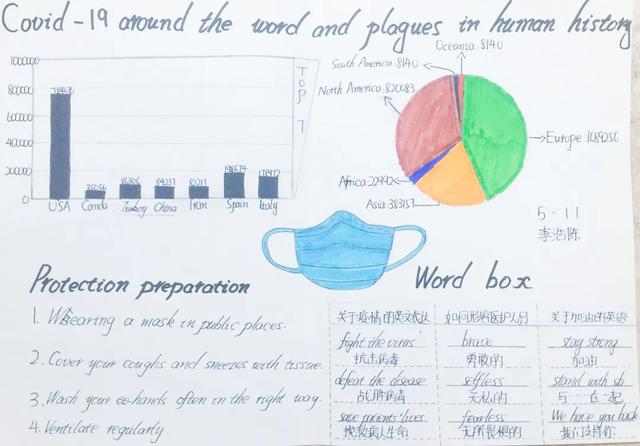 Covid-19 around the word and plagues in human history
1000000
800000
600000
400000
200000
0
USA
Canda
Turkey
China
Iran
Spain
Italy
TOP 7
Oceania: 8140
South America: 8140
North America: 820083
Europe: 1089256
Africa: 22992
Asia: 383157
5·11
李浩陈
Protection preparation
1. Wearing a mask in public places.
2. Cover your coughs and sneezes with tissue.
3. Wash your hands often in the right way.
4. Ventilate regularly.
Word box
关于疫情的英文表达 如何形容医护人员 关于加油的英语
fight the virus brave stay strong
抗击病毒 勇敢的 加油
defeat the disease selfless stand with sb
战胜病毒 无私的 与…在一起
save patients' lives fearless We have you back
挽救病人生命 无所畏惧的 我们支持你